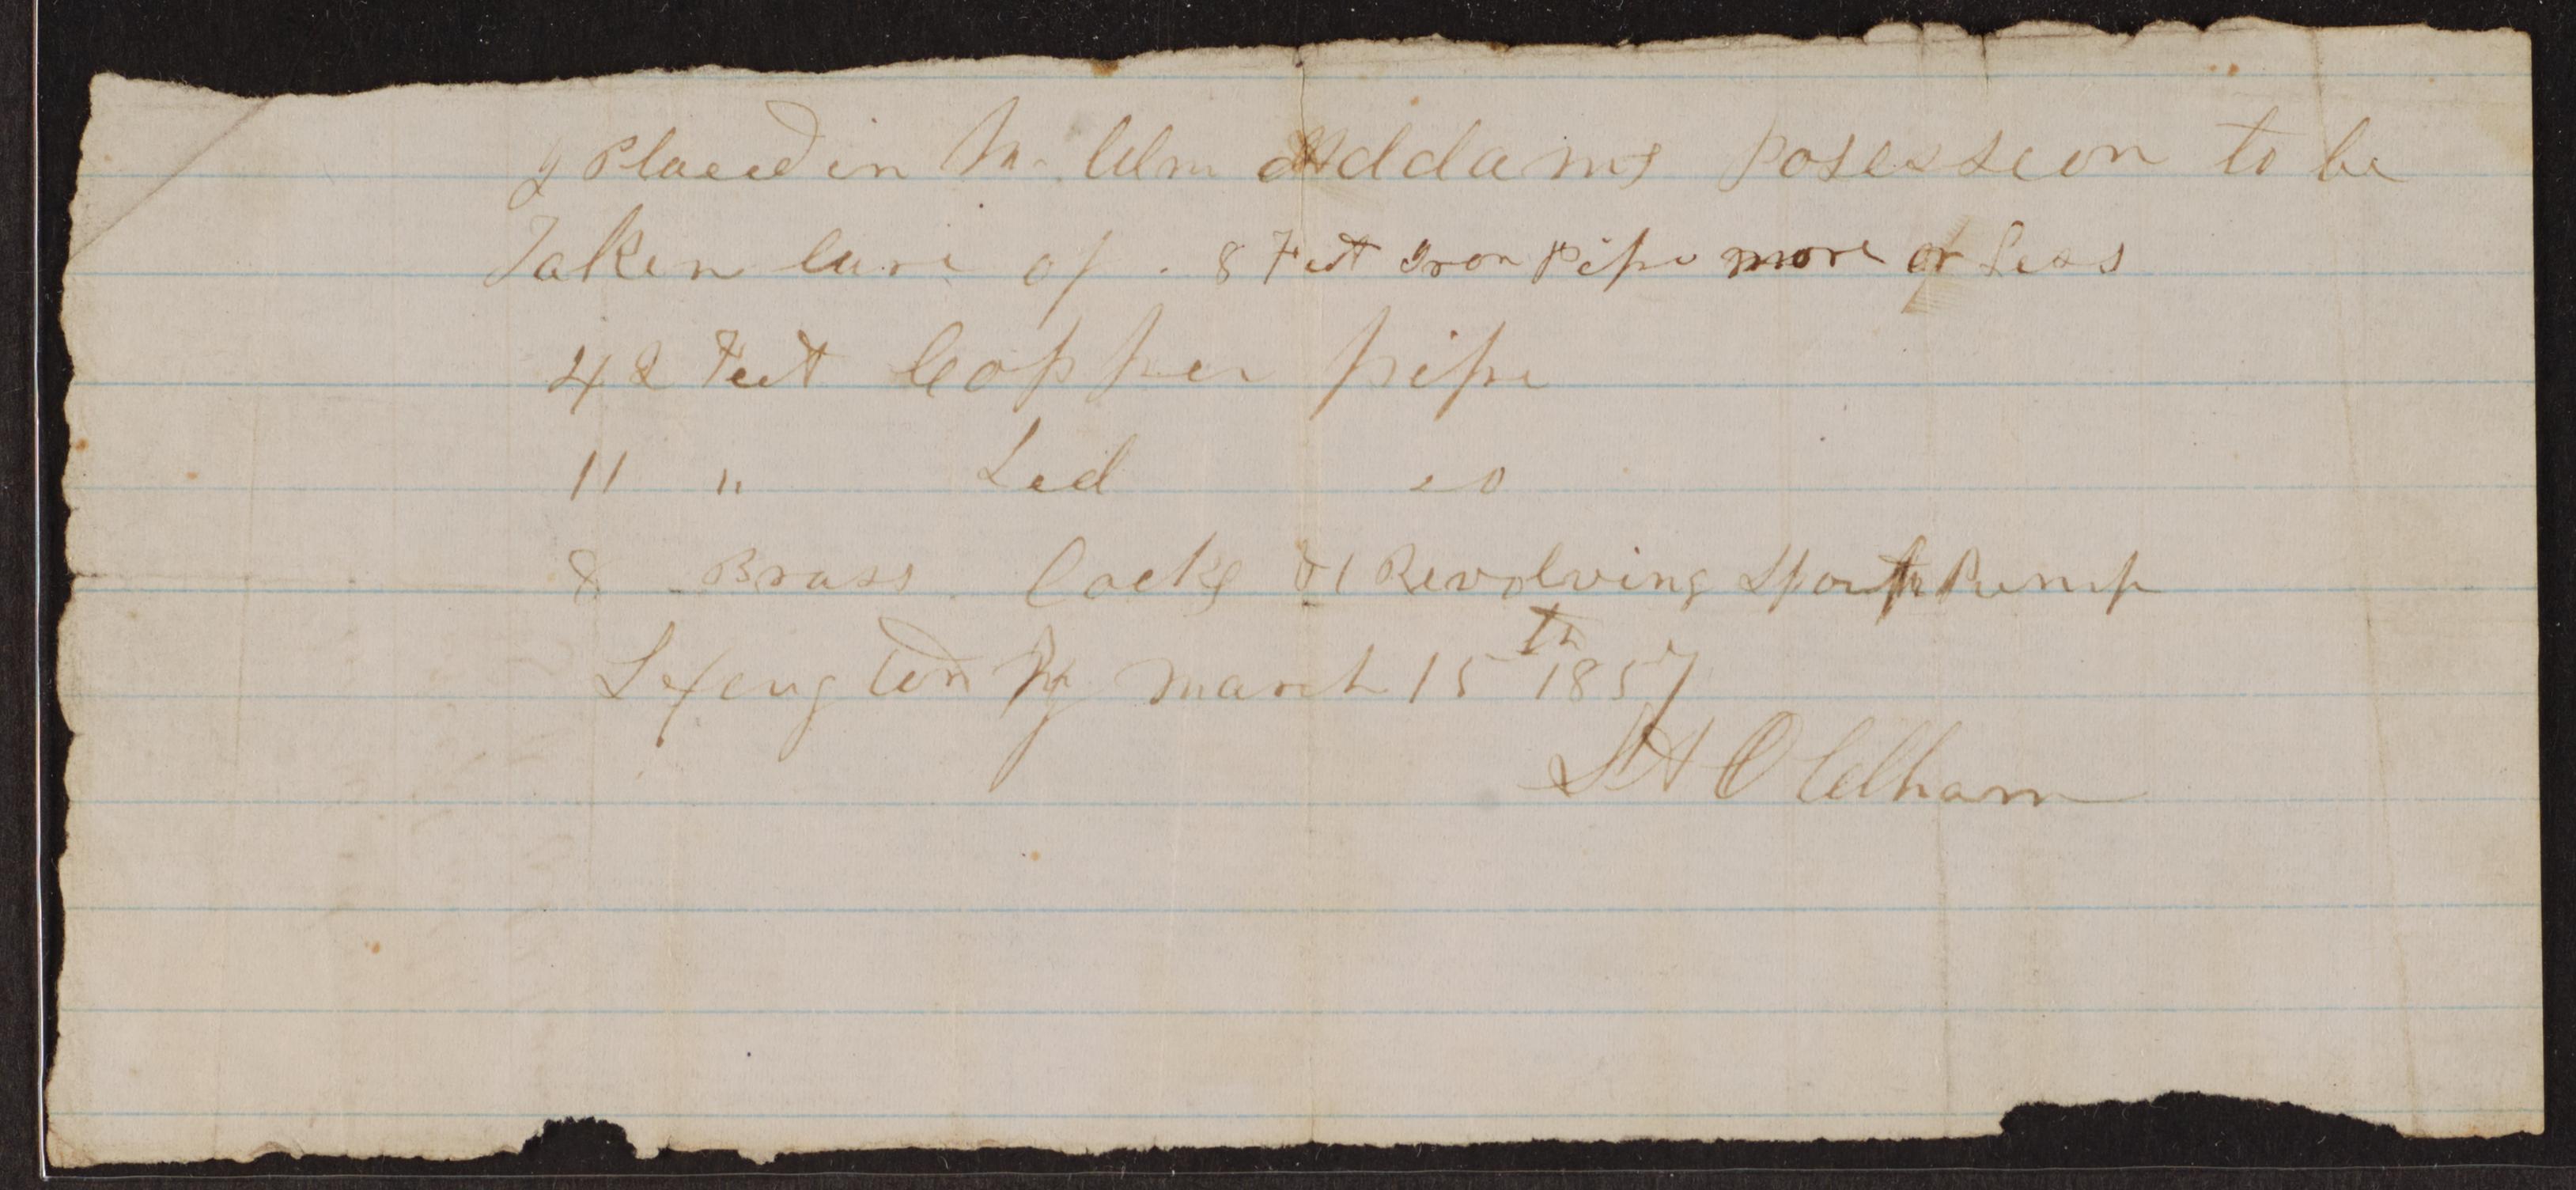 I Placed in Mr Wm Addams Posession to be
Taken Care of . 8 Feet Iron Pipe more or Less
42 Feet Copper pipe
11 " Led do
8 Brass Cocks & 1 Revolving Pump
Lexington Ky March 15th 1857
S H Oldham